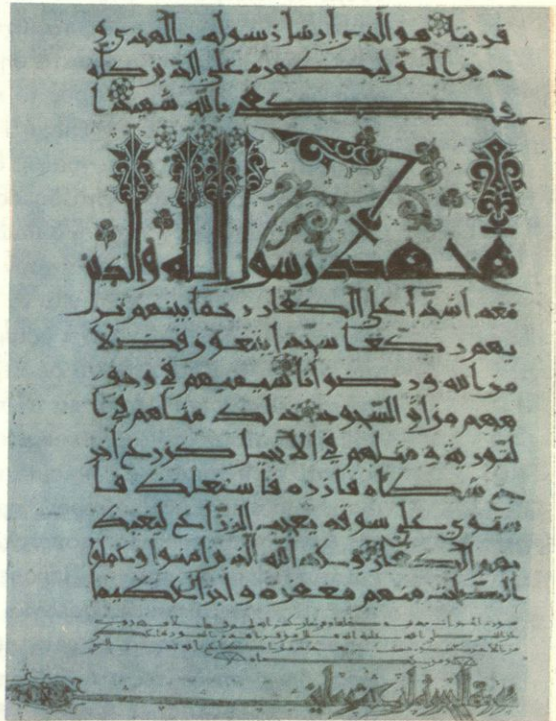 قريبا هو الذي ارسل رسوله بالهدى و
دين الحق ليظهره على الدين كله
وكفى بالله شهيدا
محمد رسول الله والذين
معه اشدآ على الكفار رحما بينهم تر
يهم ركعا سجدا يبتغون فضلا
من الله ورضوانا سيميهم في وجو
ههم من اثر السجود ذلك مثلهم في ا
لتورية و مثلهم في الانجيل كزرع اخر
ج شطاه فازره فاستغلظ فا
ستوى على سوقه يعجب الزراع ليغيظ
بهم الكفار وعد الله الذين امنوا وعملوا
الصلحت منهم مغفرة واجرا عظيما
سورة الحجرات